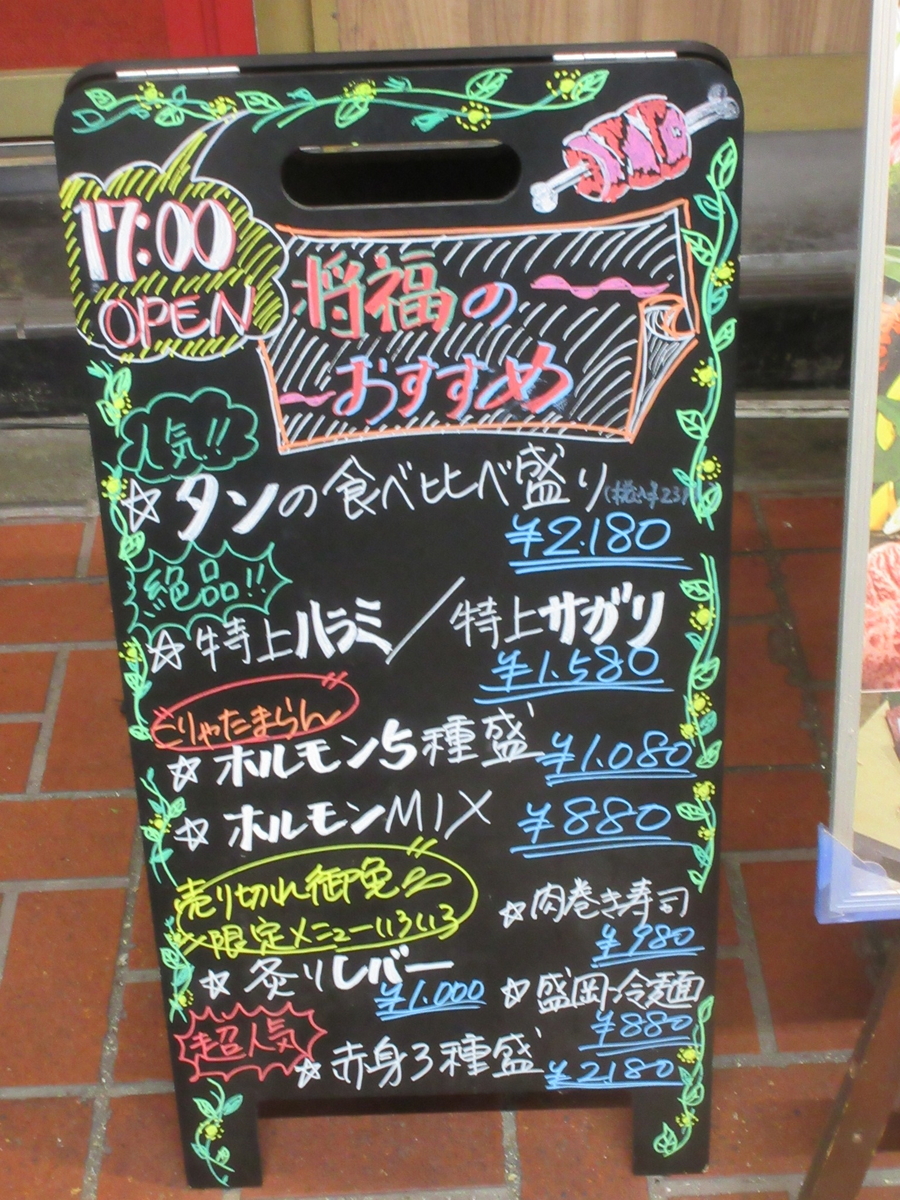 17:00
OPEN
将福の
おすすめ
人気!!
☆タンの食べ比べ盛り
¥2.180
絶品!!
☆特上ハラミ／特上サガリ
¥1.580
こりゃたまらん
☆ホルモン5種盛 ¥1.080
☆ホルモンMIX ¥880
売り切れ御免
限定メニューいろいろ
☆炙りレバー
¥1.000
☆肉巻き寿司
¥980
☆盛岡冷麺
¥880
超人気
☆赤身3種盛 ¥2180